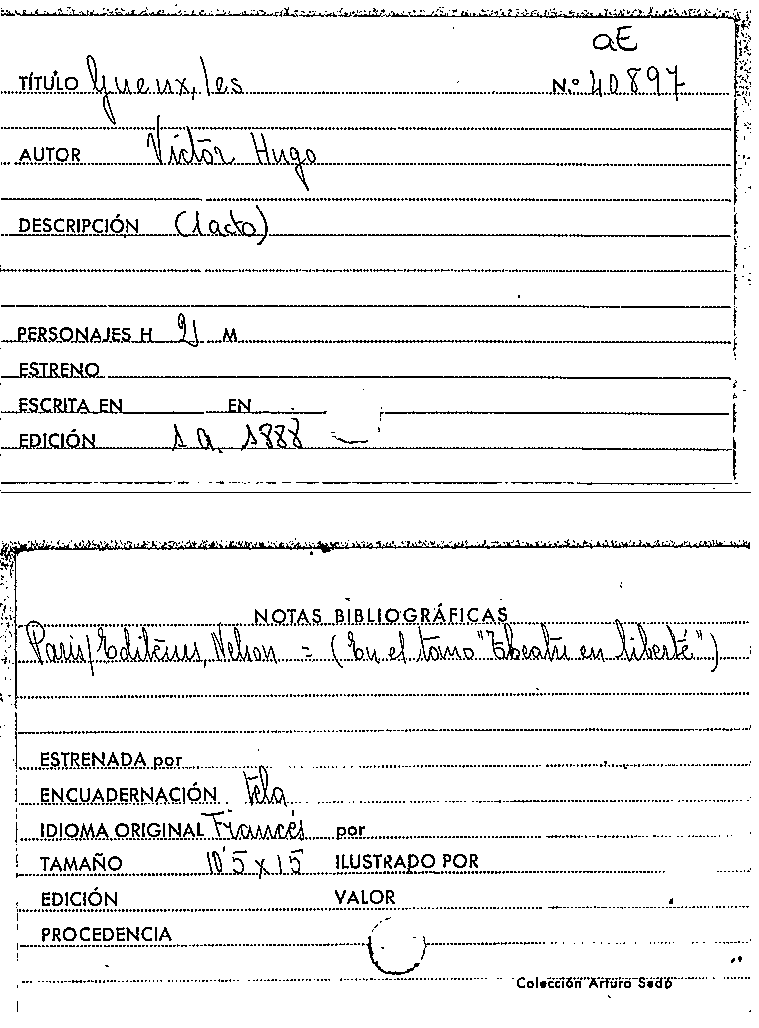 aE
TÍTULO Gueux, les N.º 40897
AUTOR Víctor Hugo
DESCRIPCIÓN (1 acto)
PERSONAJES H 9 M
ESTRENO
ESCRITA EN EN
EDICIÓN 1 a. 1888
NOTAS BIBLIOGRÁFICAS
Paris/Editeurs, Nelson = (En el tomo "Theatre en liberté")
ESTRENADA por
ENCUADERNACIÓN Tela
IDIOMA ORIGINAL Francés por
TAMAÑO 10'5 x 15 ILUSTRADO POR
EDICIÓN VALOR
PROCEDENCIA
Colección Arturo Sedó